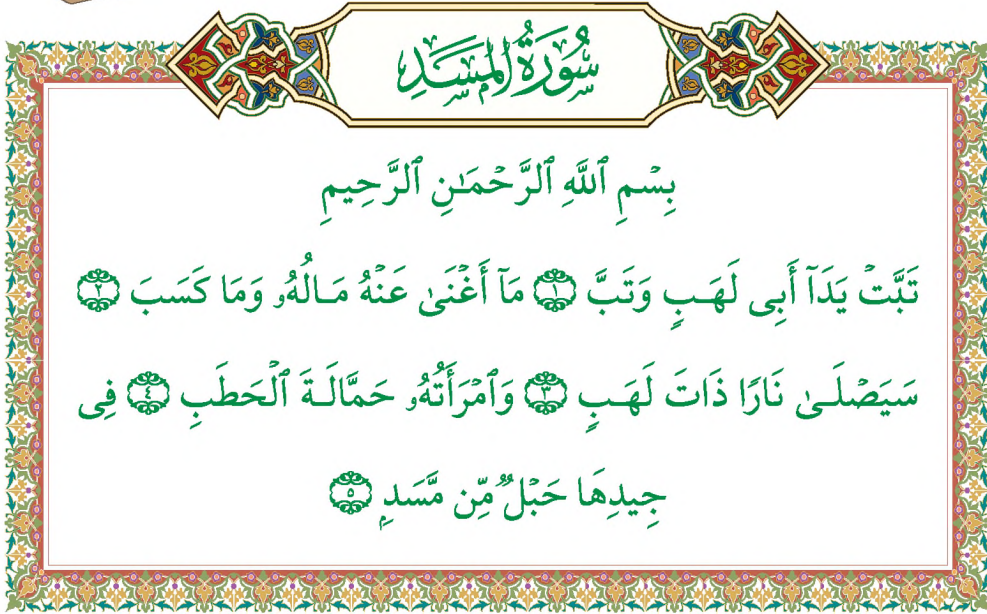 سُورَةُ المَسَدِ
بِسْمِ ٱللَّهِ ٱلرَّحْمَـٰنِ ٱلرَّحِيمِ
تَبَّتْ يَدَآ أَبِى لَهَـبٍ وَتَبَّ ۝١ مَآ أَغْنَىٰ عَنْهُ مَـالُهُۥ وَمَا كَسَبَ ۝٢
سَيَصْلَـىٰ نَارًا ذَاتَ لَهَـبٍ ۝٣ وَٱمْرَأَتُهُۥ حَمَّالَـةَ ٱلْحَطَبِ ۝٤ فِى
جِيدِهَا حَبْلٌ مِّن مَّسَدٍۭ ۝٥